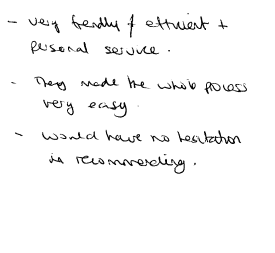 - very friendly & efficient +
personal service.
- They made the whole process
very easy.
- would have no hesitation
in recommending.